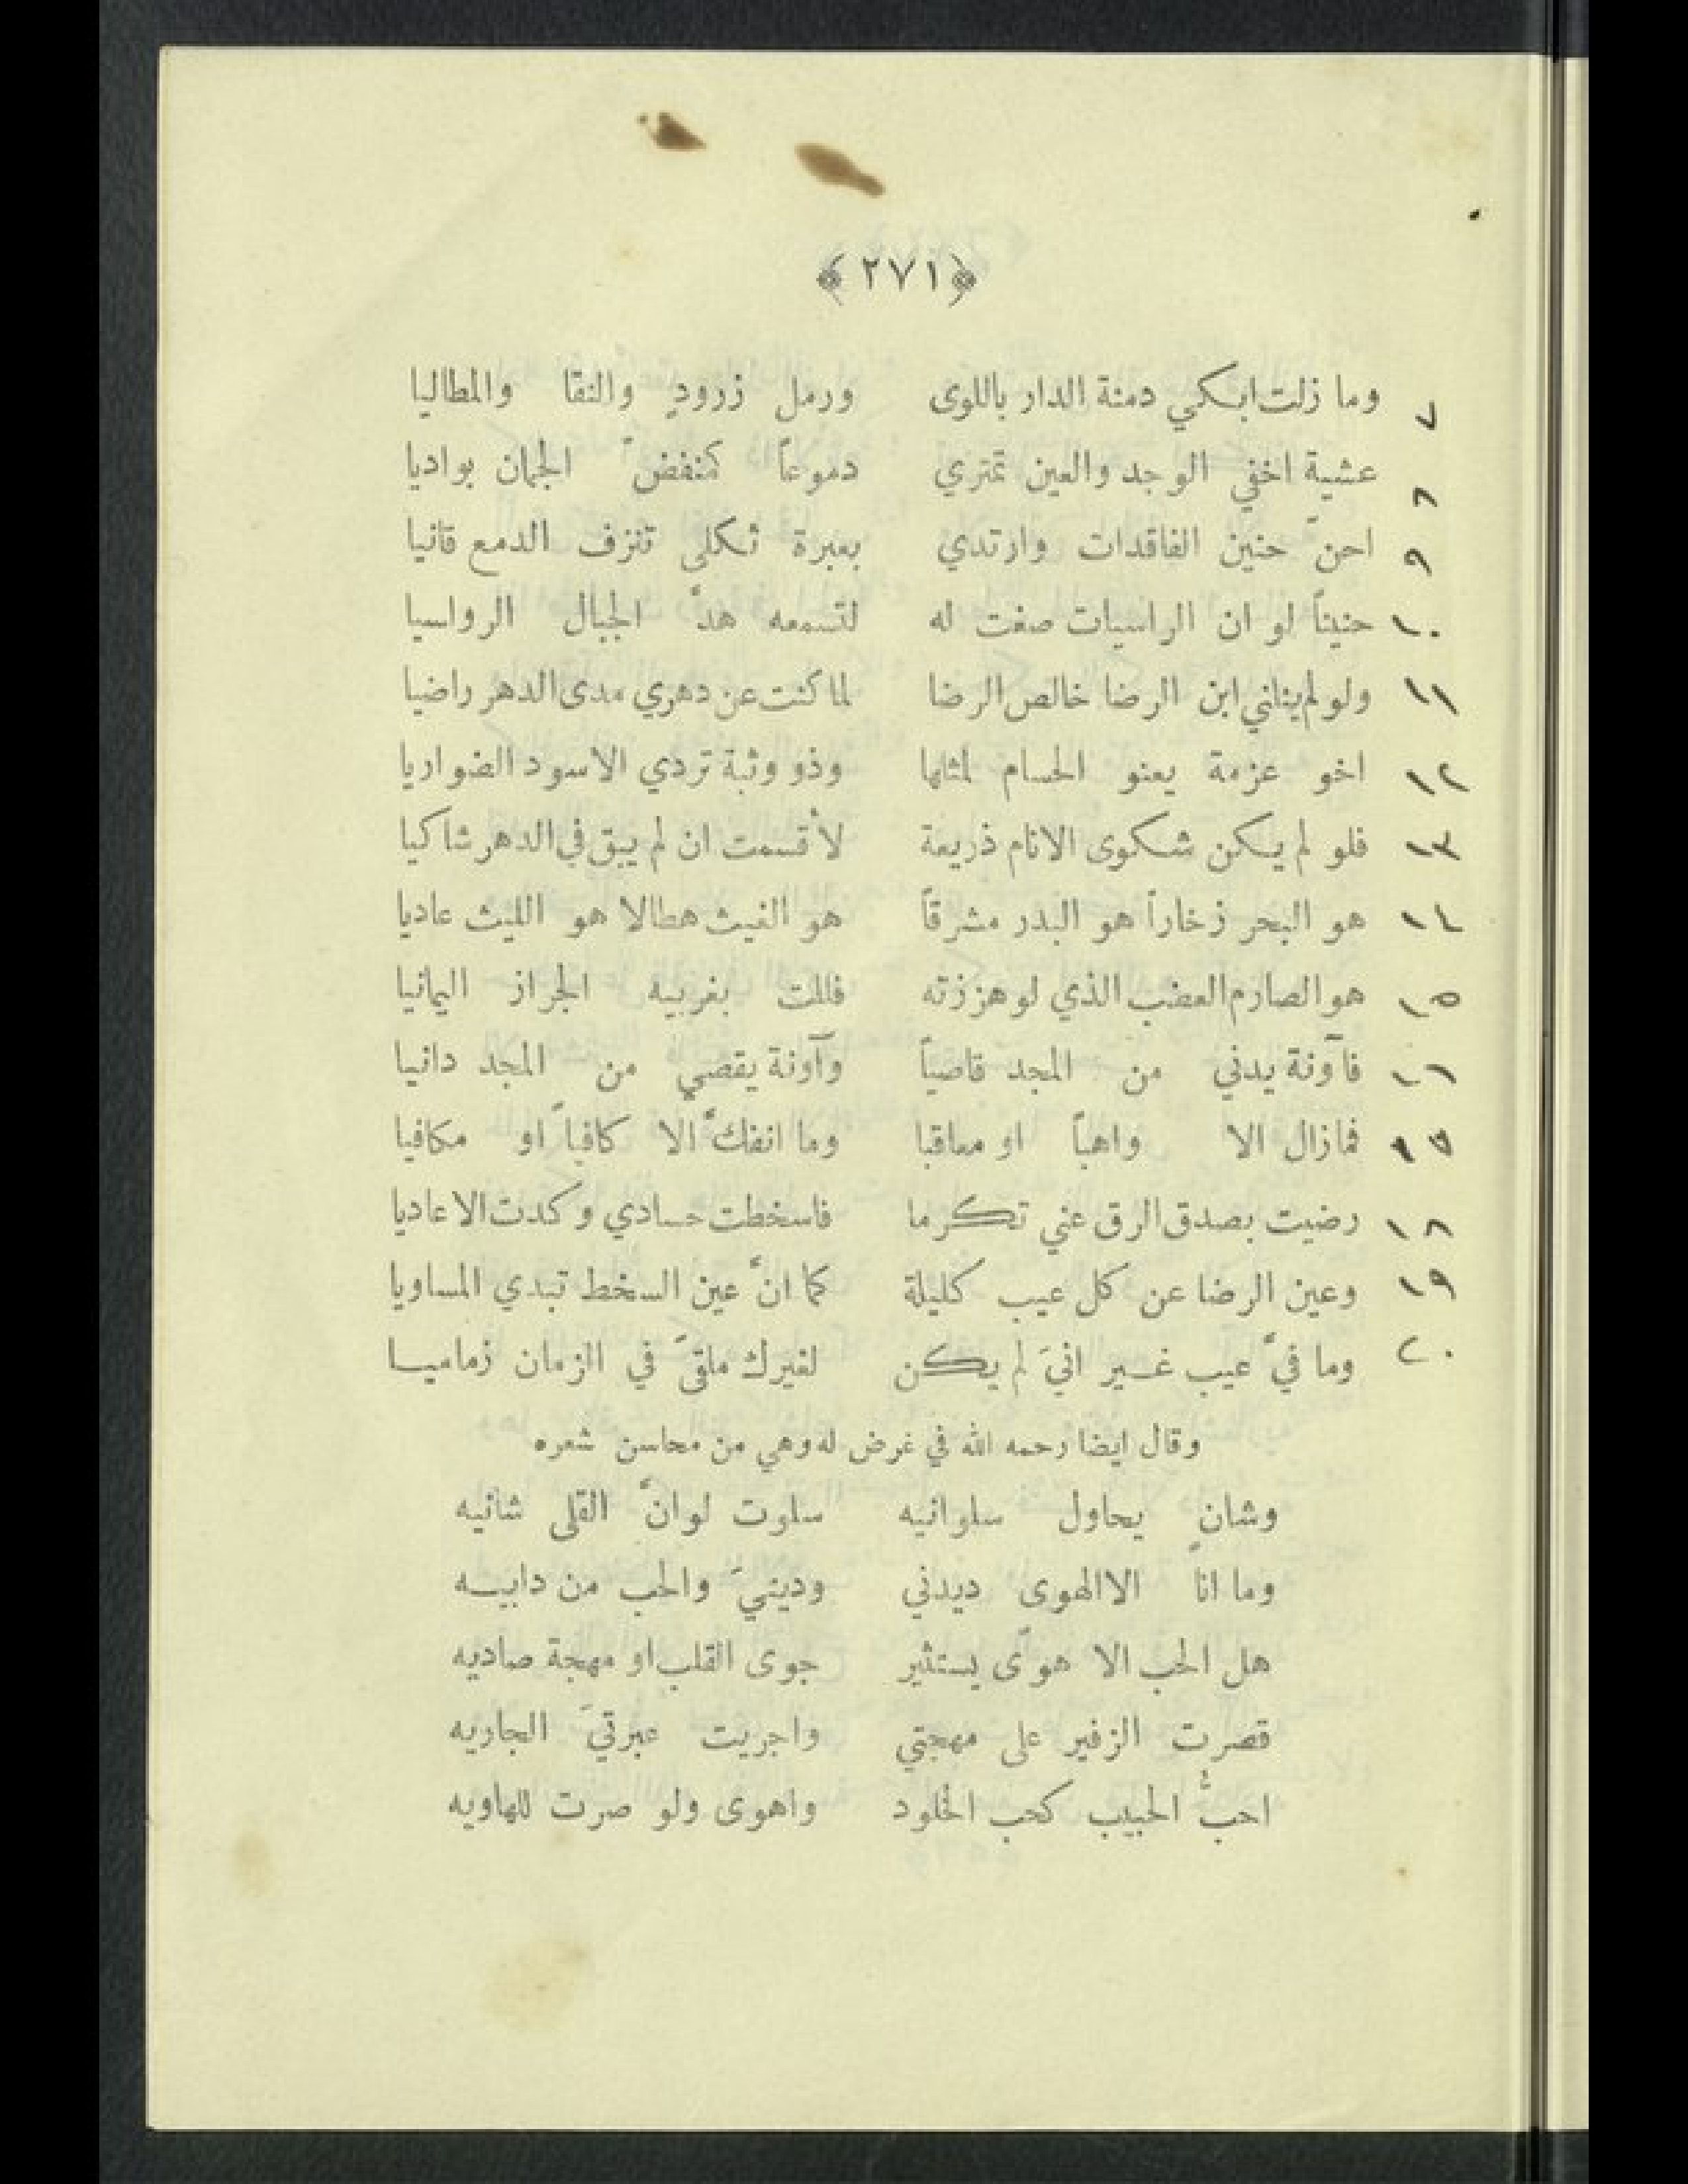 ﴿٢٧١﴾
٧ وما زلت ابكي دمنة الدار باللوى ورمل زرودٍ والنقا والمطاليا
٨ عشية اخفي الوجد والعين تمتري دموعاً كمنفضّ الجمان بواديا
٩ احنّ حنين الفاقدات وارتدي بعبرة ثكلى تنزف الدمع قانيا
١٠ حنيناً لو ان الراسيات صغت له لتسمعه هدّ الجبال الرواسيا
١١ ولو لم ينلني ابن الرضا خالص الرضا لما كنت عن دهري مدى الدهر راضيا
١٢ اخو عزمة يعنو الحسام لمثلها وذو وثبة تردي الاسود الضواريا
١٣ فلو لم يكن شكوى الانام ذريعة لأقسمت ان لم يبق في الدهر شاكيا
١٤ هو البحر زخاراً هو البدر مشرقاً هو الغيث هطالا هو الليث عاديا
١٥ هو الصارم العضب الذي لو هززته فللت بغربيه الجراز اليمانيا
١٦ فآونة يدني من المجد قاصياً وآونة يقصي من المجد دانيا
فمازال الا واهباً او معاقبا وما انفكّ الا كافياً او مكافيا
١٨ رضيت بصدق الرق عني تكرما فاسخطت حسادي وكدت الاعاديا
١٩ وعين الرضا عن كل عيب كليلة كما انّ عين السخط تبدي المساويا
٢٠ وما فيّ عيب غير انيَ لم يكن لغيرك ملقىً في الزمان زماميا
وقال ايضا رحمه الله في غرض له وهي من محاسن شعره
وشانٍ يحاول سلوانيه سلوت لو انّ القلى شانيه
وما انا الا الهوى ديدني ودينيَ والحب من دابيه
هل الحب الا هوًى يستثير جوى القلب او مهجة صاديه
قصرت الزفير على مهجتي واجريت عبرتيَ الجاريه
احبُّ الحبيب كحب الخلود واهوى ولو صرت للهاويه